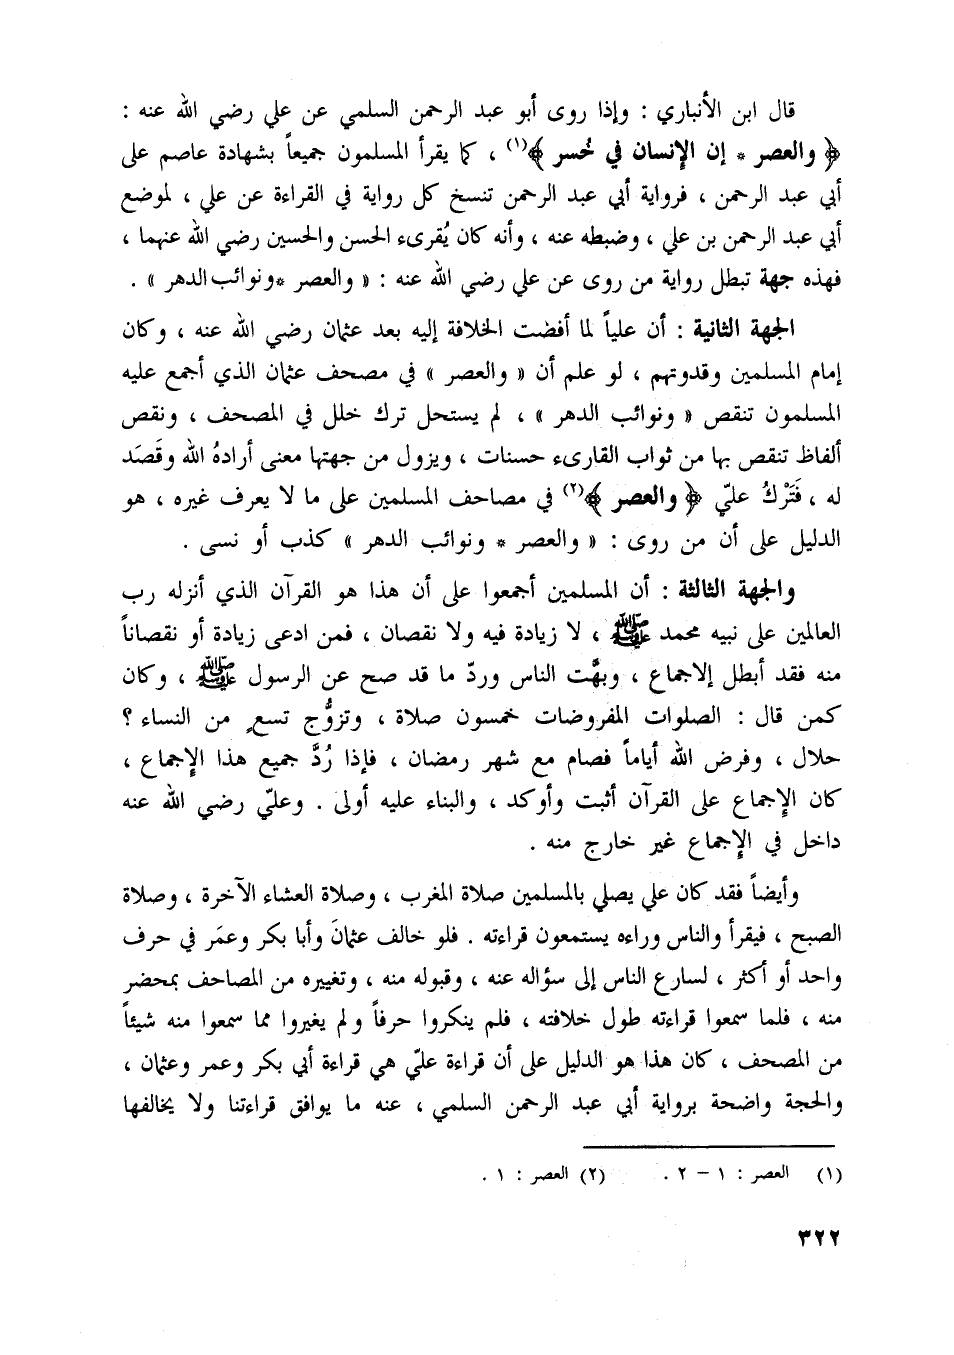 قال ابن الأنباري : وإذا روى أبو عبد الرحمن السلمي عن علي رضي الله عنه :
﴿ والعصر * إن الإنسان في خُسر ﴾(١) ، كما يقرأ المسلمون جميعاً بشهادة عاصم على
أبي عبد الرحمن ، فرواية أبي عبد الرحمن تنسخ كل رواية في القراءة عن علي ، لموضع
أبي عبد الرحمن بن علي ، وضبطه عنه ، وأنه كان يُقرىء الحسن والحسين رضي الله عنهما ،
فهذه جهة تبطل رواية من روى عن علي رضي الله عنه : « والعصر *ونوائب الدهر » .
الجهة الثانية : أن علياً لما أفضت الخلافة إليه بعد عثمان رضي الله عنه ، وكان
إمام المسلمين وقدوتهم ، لو علم أن « والعصر » في مصحف عثمان الذي أجمع عليه
المسلمون تنقص « ونوائب الدهر » ، لم يستحل ترك خلل في المصحف ، ونقص
ألفاظ تنقص بها من ثواب القارىء حسنات ، ويزول من جهتها معنى أرادهُ الله وقَصَد
له ، فَتَرْكُ عليّ ﴿ والعصر ﴾(٢) في مصاحف المسلمين على ما لا يعرف غيره ، هو
الدليل على أن من روى : « والعصر * ونوائب الدهر » كذب أو نسى .
والجهة الثالثة : أن المسلمين أجمعوا على أن هذا هو القرآن الذي أنزله رب
العالمين على نبيه محمد ﷺ ، لا زيادة فيه ولا نقصان ، فمن ادعى زيادة أو نقصاناً
منه فقد أبطل إلاجماع ، وبهَّت الناس وردّ ما قد صح عن الرسول ﷺ ، وكان
كمن قال : الصلوات المفروضات خمسون صلاة ، وتزوُّج تسعٍ من النساء ؟
حلال ، وفرض الله أياماً فصام مع شهر رمضان ، فإذا رُدَّ جميع هذا الإجماع ،
كان الإجماع على القرآن أثبت وأوكد ، والبناء عليه أولى . وعليّ رضي الله عنه
داخل في الإجماع غير خارج منه .
وأيضاً فقد كان علي يصلي بالمسلمين صلاة المغرب ، وصلاة العشاء الآخرة ، وصلاة
الصبح ، فيقرأ والناس وراءه يستمعون قراءته . فلو خالف عثمانَ وأبا بكر وعمَر في حرف
واحد أو أكثر ، لسارع الناس إلى سؤاله عنه ، وقبوله منه ، وتغييره من المصاحف بمحضر
منه ، فلما سمعوا قراءته طول خلافته ، فلم ينكروا حرفاً ولم يغيروا مما سمعوا منه شيئاً
من المصحف ، كان هذا هو الدليل على أن قراءة عليّ هي قراءة أبي بكر وعمر وعثمان ،
والحجة واضحة برواية أبي عبد الرحمن السلمي ، عنه ما يوافق قراءتنا ولا يخالفها
(١) العصر : ١ – ٢ . (٢) العصر : ١ .
٣٢٢